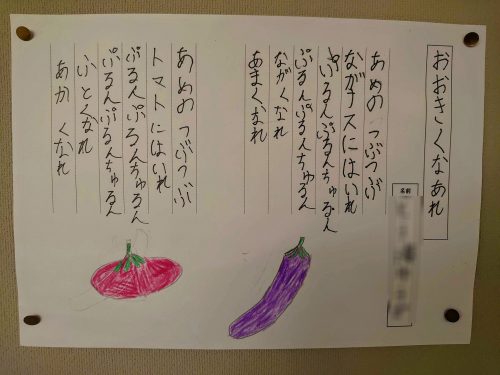 おおきくなあれ
名前
あめの つぶつぶ
ながナスにはいれ
ぷるんぷるんちゅるん
ぷるんぷるんちゅるん
ながくなれ
あまくなれ
あめの つぶつぶ
トマトにはいれ
ぷるんぷるんちゅるん
ぷるんぷるんちゅるん
ふとくなれ
あかくなれ